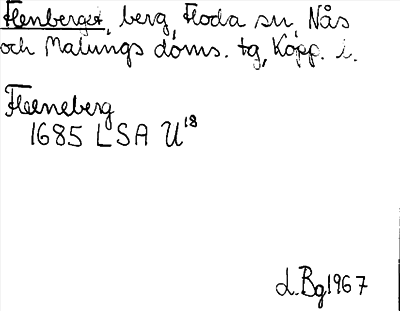 Flenberget, berg, Floda sn, Nås
och Malungs doms. tg, Kopp. l.
Fleneberg
1685 LSA U¹⁸
L.Bg 1967